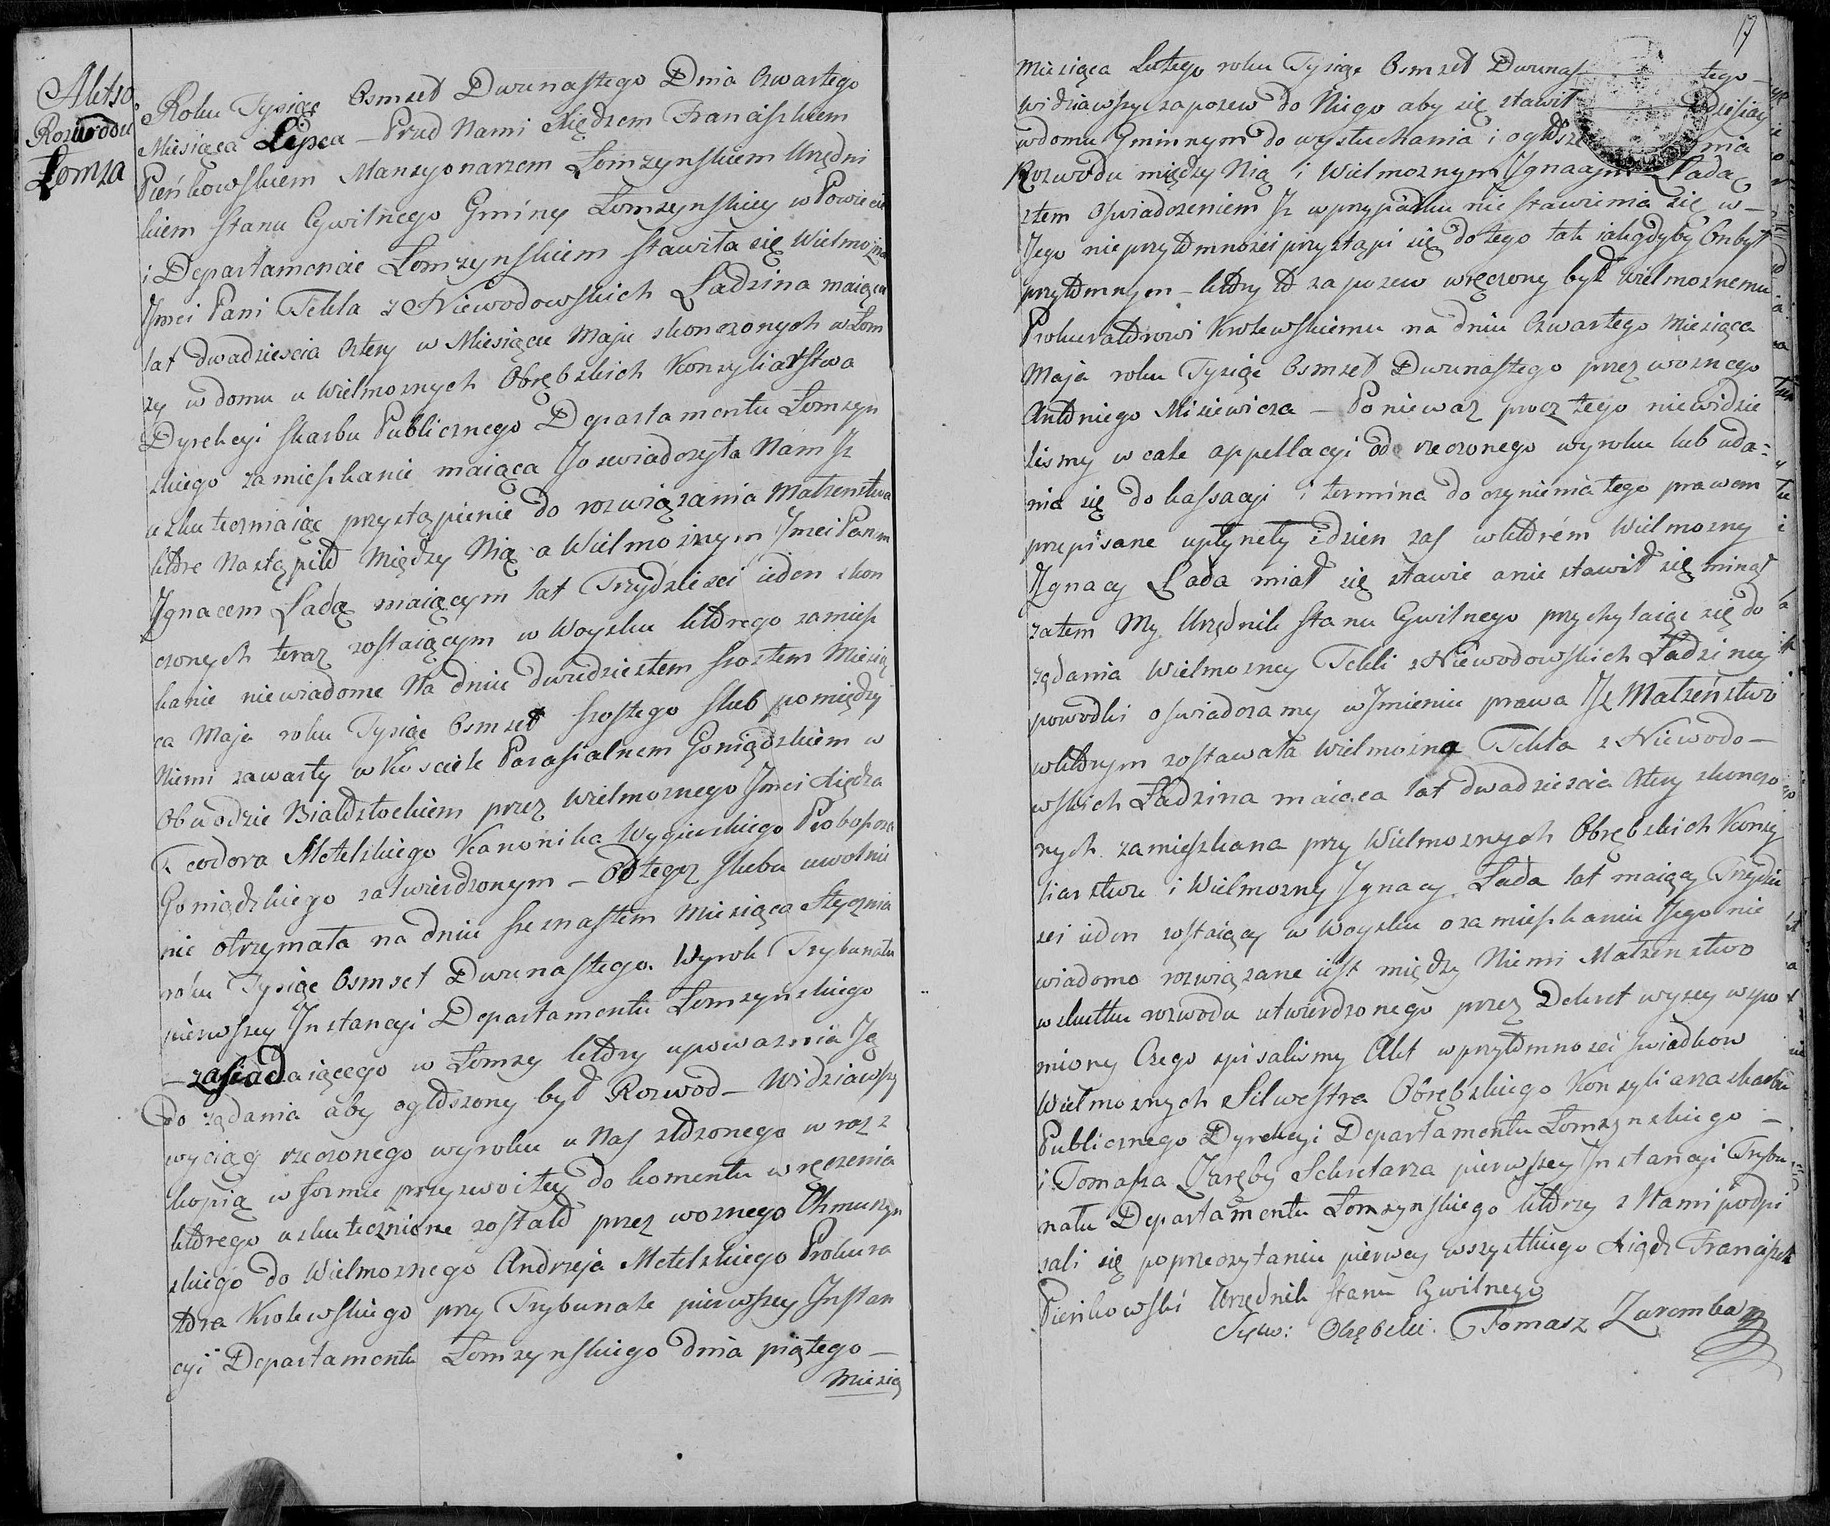 Akt 
Rozwodu
Łomza
Roku Tysiąc Osmset Dwunastego Dnia Czwartego
Miesiąca Lipca – Przed Nami Xiędzem Franciszkiem
Pieńkowskiem Mansyonarzem Łomzynskiem Urzędni
kiem Stanu Cywilnego Gminy Łomzynskiey w Powiecie
i Departamencie Łomzynskiem stawiła się Wielmozna
Jmci Pani Tekla z Niewodowskich Ladzina maiąca
lat dwadziescia cztery w Miesiącu Maju skonczonych w Łom
zy w domu u Wielmoznych Obrębskich Konsyliarstwa
Dyrekcyi Skarbu Publicznego Departamentu Łomzyn
skiego zamieszkanie maiąca Jo swiadczyła Nam Jz
uskuteczniaiąc przystąpienie do rozwiązania Małzenstwa
które Nastąpiło Między Nią a Wielmoznym Jmci Panem
Jgnacem Ladą maiącym lat Trzydziesci ieden skon
czonych teraz zostaiącym w Woysku którego zamiesz
kanie niewiadome Na dniu dwudziestem szostem Miesią
ca Maja roku Tysiąc Osmset szostego slub pomiędzy
Niemi zawarty w Kosciele Parafialnem Goniądzkiem w
Obwodzie Białostockiem przez Wielmoznego Jmci Xiędza
Teodora Metelskiego Kanonika Wygierskiego Proboszcza
Goniądzkiego zatwierdzonym – Od tegoz slubu uwolnie
nie otrzymała na dniu szesnastem Miesiąca Stycznia
roku Tysiąc Osmset Dwunastego. Wyrok Trybunału
pierwszey Jnstancyi Departamentu Łomzynskiego
– zasiadaiącego w Łomzy który upowaznia Ją
Do ządania aby ogłoszony był Rozwod – Widziawszy
wyciąg rzeczonego wyroku u Nas złozonego wraz z
kopią w formie przyzwoitey do komentu wręczenia
którego uskutecznione zostało przez woznego Chmurzyn
skiego do Wielmoznego Andrzeja Metelskiego Prokura
tora Krolewskiego przy Trybunale pierwszey Jnstan
cyi Departamentu Łomzynskiego dnia piątego –
Miesią
17
Miesiąca Lutego roku Tysiąc Osmset Dwunas tego –
Widziawszy zapozew do Niego aby się stawił dzisiay
w domu Gminnym do wysłuchania i ogłosze nia
Rozwodu między Nią i Wielmoznym Jgnacym Ladą
z tem oswiadczeniem Jz w przypadku nie stawienia się w –
Jego nieprzytomnosci przystąpi się do tego tak iakgdyby On był
przytomnym – który to zapozew wręczony był Wielmoznemu
Prokuratorowi Krolewskiemu na dniu Czwartego Miesiąca
Maja roku Tysiąc Osmset Dwunastego przez woznego
Antoniego Misiewicza – Poniewaz procz tego niewidzie
lismy wcale appellacyi od rzeczonego wyroku lub uda=
nia się do kassacyi i termina do czynienia tego prawem
przepisane upłynęły dzien zas w którém Wielmozny
Jgnacy Łada miał się stawic a nie stawił się minął
zatem My Urzędnik Stanu Cywilnego przychylaiąc się do
ządania Wielmozney Tekli z Niewodowskich Ładziney
powodki oswiadczamy w Jmieniu prawa Jz Małzeństwo
w którym zostawała Wielmozna Tekla z Niewodo –
wskich Ładzina maiąca lat dwadziescia cztery skonczo
nych zamieszkana przy Wielmoznych Obrębskich Konsy
liarstwu i Wielmozny Jgnacy Łada lat maiący Trzydzie
sci ieden zostaiący w Woysku o zamieszkaniu Jego nie
wiadomo rozwiązane iest między Niemi Małzenstwo
w skutku rozwodu utwierdzonego przez Dekret wyzey wspo
mniony Czego spisalismy Akt w przytomnosci swiadkow
Wielmoznych Silwestra Obrębskiego Konsyliarza skarbu
Publicznego Dyrekcyi Departamentu Łomzynskiego –
i Tomasza Zaręby Sekretarza pierwszey Jnstancyi Trybu
nału Departamentu Łomzynskiego którzy z Nami podpi
sali się po przeczytaniu pierwey wszystkiego Xiądz Franciszek
Pieńkowski Urzędnik Stanu Cywilnego
Sylw: Obrębski. Tomasz Zaremba